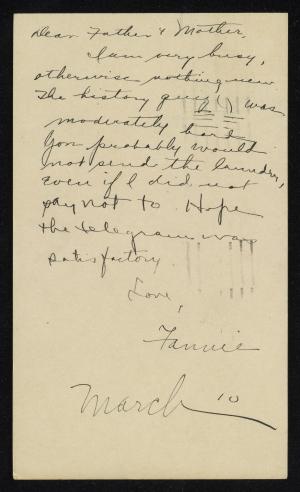 Dear Father & Mother,
I am very busy,
otherwise nothing new
The history quiz (!) was
moderately hard
You probably would
not send the laundry,
even if I did not
say not to Hope
the telegram was
satisfactory
Love,
Fannie
March 10